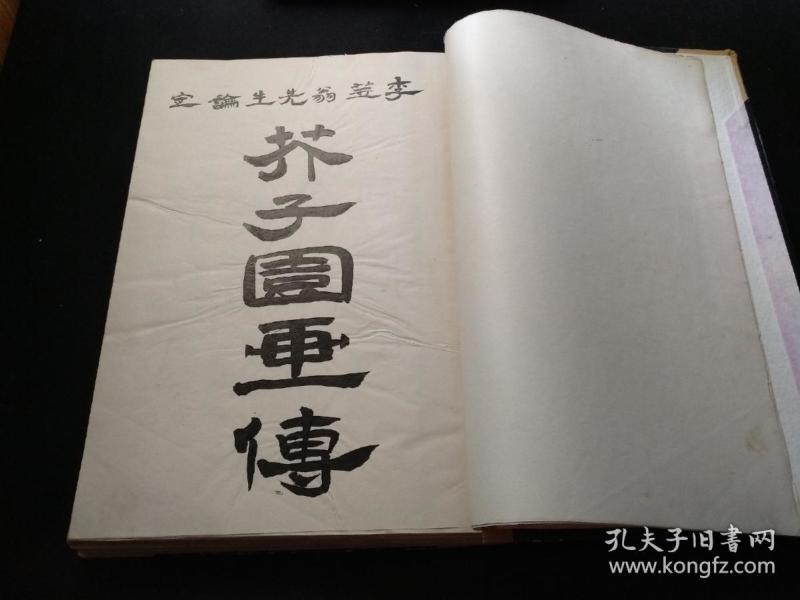 李笠翁先生論定
芥子園畫傳
孔夫子旧書网
www.kongfz.com